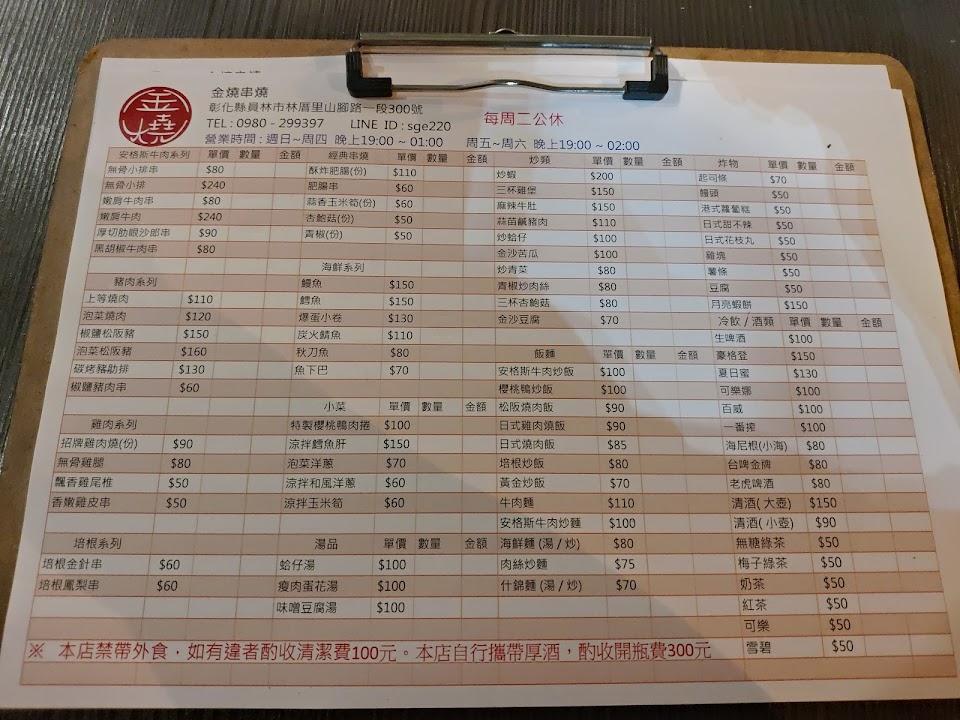 金燒
金燒串燒
彰化縣員林市林厝里山腳路一段300號
TEL : 0980 - 299397 LINE ID : sge220 每周二公休
營業時間 : 週日~周四 晚上19:00 ~ 01:00 周五~周六 晚上19:00 ~ 02:00
安格斯牛肉系列 單價 數量 金額
無骨小排串 $80
無骨小排 $240
嫩肩牛肉串 $80
嫩肩牛肉 $240
厚切肋眼沙郎串 $90
黑胡椒牛肉串 $80
豬肉系列
上等燒肉 $110
泡菜燒肉 $120
椒鹽松阪豬 $150
泡菜松阪豬 $160
碳烤豬肋排 $130
椒鹽豬肉串 $60
雞肉系列
招牌雞肉燒(份) $90
無骨雞腿 $80
飄香雞尾椎 $50
香嫩雞皮串 $50
培根系列
培根金針串 $60
培根鳳梨串 $60
經典串燒 單價 數量 金額
酥炸肥腸(份) $110
肥腸串 $60
蒜香玉米筍(份) $60
杏鮑菇(份) $50
青椒(份) $50
海鮮系列
鰻魚 $150
鱈魚 $150
爆蛋小卷 $130
炭火鯖魚 $110
秋刀魚 $80
魚下巴 $70
小菜 單價 數量 金額
特製櫻桃鴨肉捲 $100
涼拌鱈魚肝 $150
泡菜洋蔥 $70
涼拌和風洋蔥 $60
涼拌玉米筍 $60
湯品 單價 數量 金額
蛤仔湯 $100
瘦肉蛋花湯 $100
味噌豆腐湯 $100
炒類 單價 數量 金額
炒蝦 $200
三杯雞堡 $150
麻辣牛肚 $150
蒜苗鹹豬肉 $110
炒蛤仔 $100
金沙苦瓜 $100
炒青菜 $80
青椒炒肉絲 $80
三杯杏鮑菇 $80
金沙豆腐 $70
飯麵 單價 數量 金額
安格斯牛肉炒飯 $100
櫻桃鴨炒飯 $100
松阪燒肉飯 $90
日式雞肉燒飯 $90
日式燒肉飯 $85
培根炒飯 $80
黃金炒飯 $70
牛肉麵 $110
安格斯牛肉炒麵 $100
海鮮麵 (湯 / 炒) $80
肉絲炒麵 $75
什錦麵 (湯 / 炒) $70
炸物 單價 數量 金額
起司條 $70
饅頭 $50
港式蘿蔔糕 $50
日式甜不辣 $50
日式花枝丸 $50
雞塊 $50
薯條 $50
豆腐 $50
月亮蝦餅 $150
冷飲 / 酒類 單價 數量 金額
生啤酒 $100
豪格登 $150
夏日蜜 $130
可樂娜 $100
百威 $100
一番搾 $100
海尼根(小海) $80
台啤金牌 $80
老虎啤酒 $80
清酒( 大壺) $150
清酒( 小壺) $90
無糖綠茶 $50
梅子綠茶 $50
奶茶 $50
紅茶 $50
可樂 $50
雪碧 $50
※ 本店禁帶外食，如有違者酌收清潔費100元。本店自行攜帶厚酒，酌收開瓶費300元